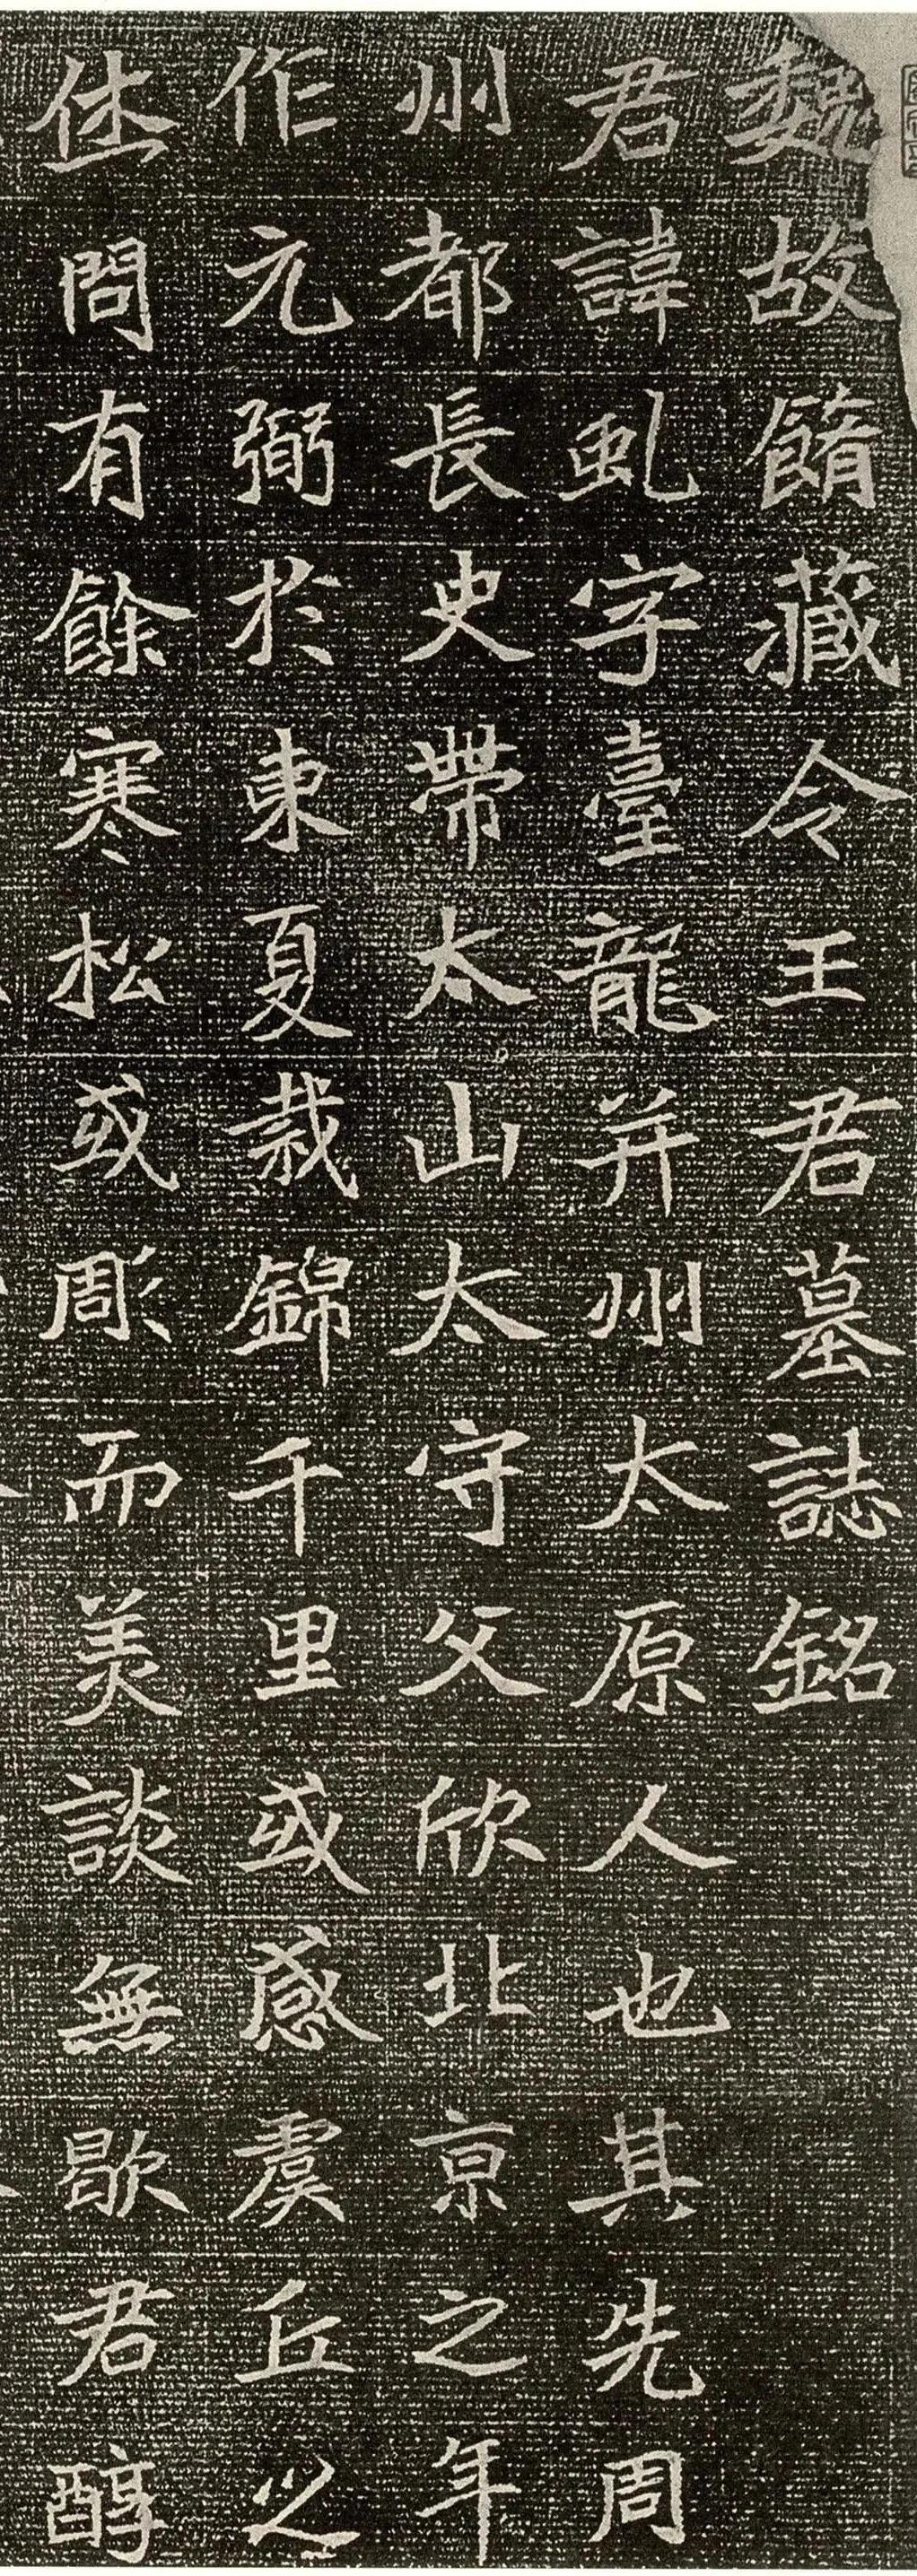 魏故餚藏令王君墓誌銘
君諱虬字臺龍并州太原人也其先周
州都長史帶太山太守父欣北京之年
作元弼於東夏裁錦千里或感虞丘之
休問有餘寒松或彫而美談無歇君醇